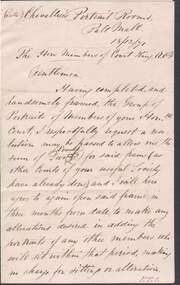 Chevalier's Portrait Rooms,
Pall Mall
15/12/70
The Hon Members of Court King A.O.F.
Gentlemen
Having completed, and
handsomely framed, the Group of
Portraits of Members of your Hon
Court, I respectfully request a reso
lution may be passed to allow me the
sum of for said frame (as
other Courts of your useful Society
have already done) and I will here
agree to again open said frame in
three months from date, to make any
alterations desired in adding the
portraits of any other member who
will sit within that period, making
no charge for sitting or alteration.